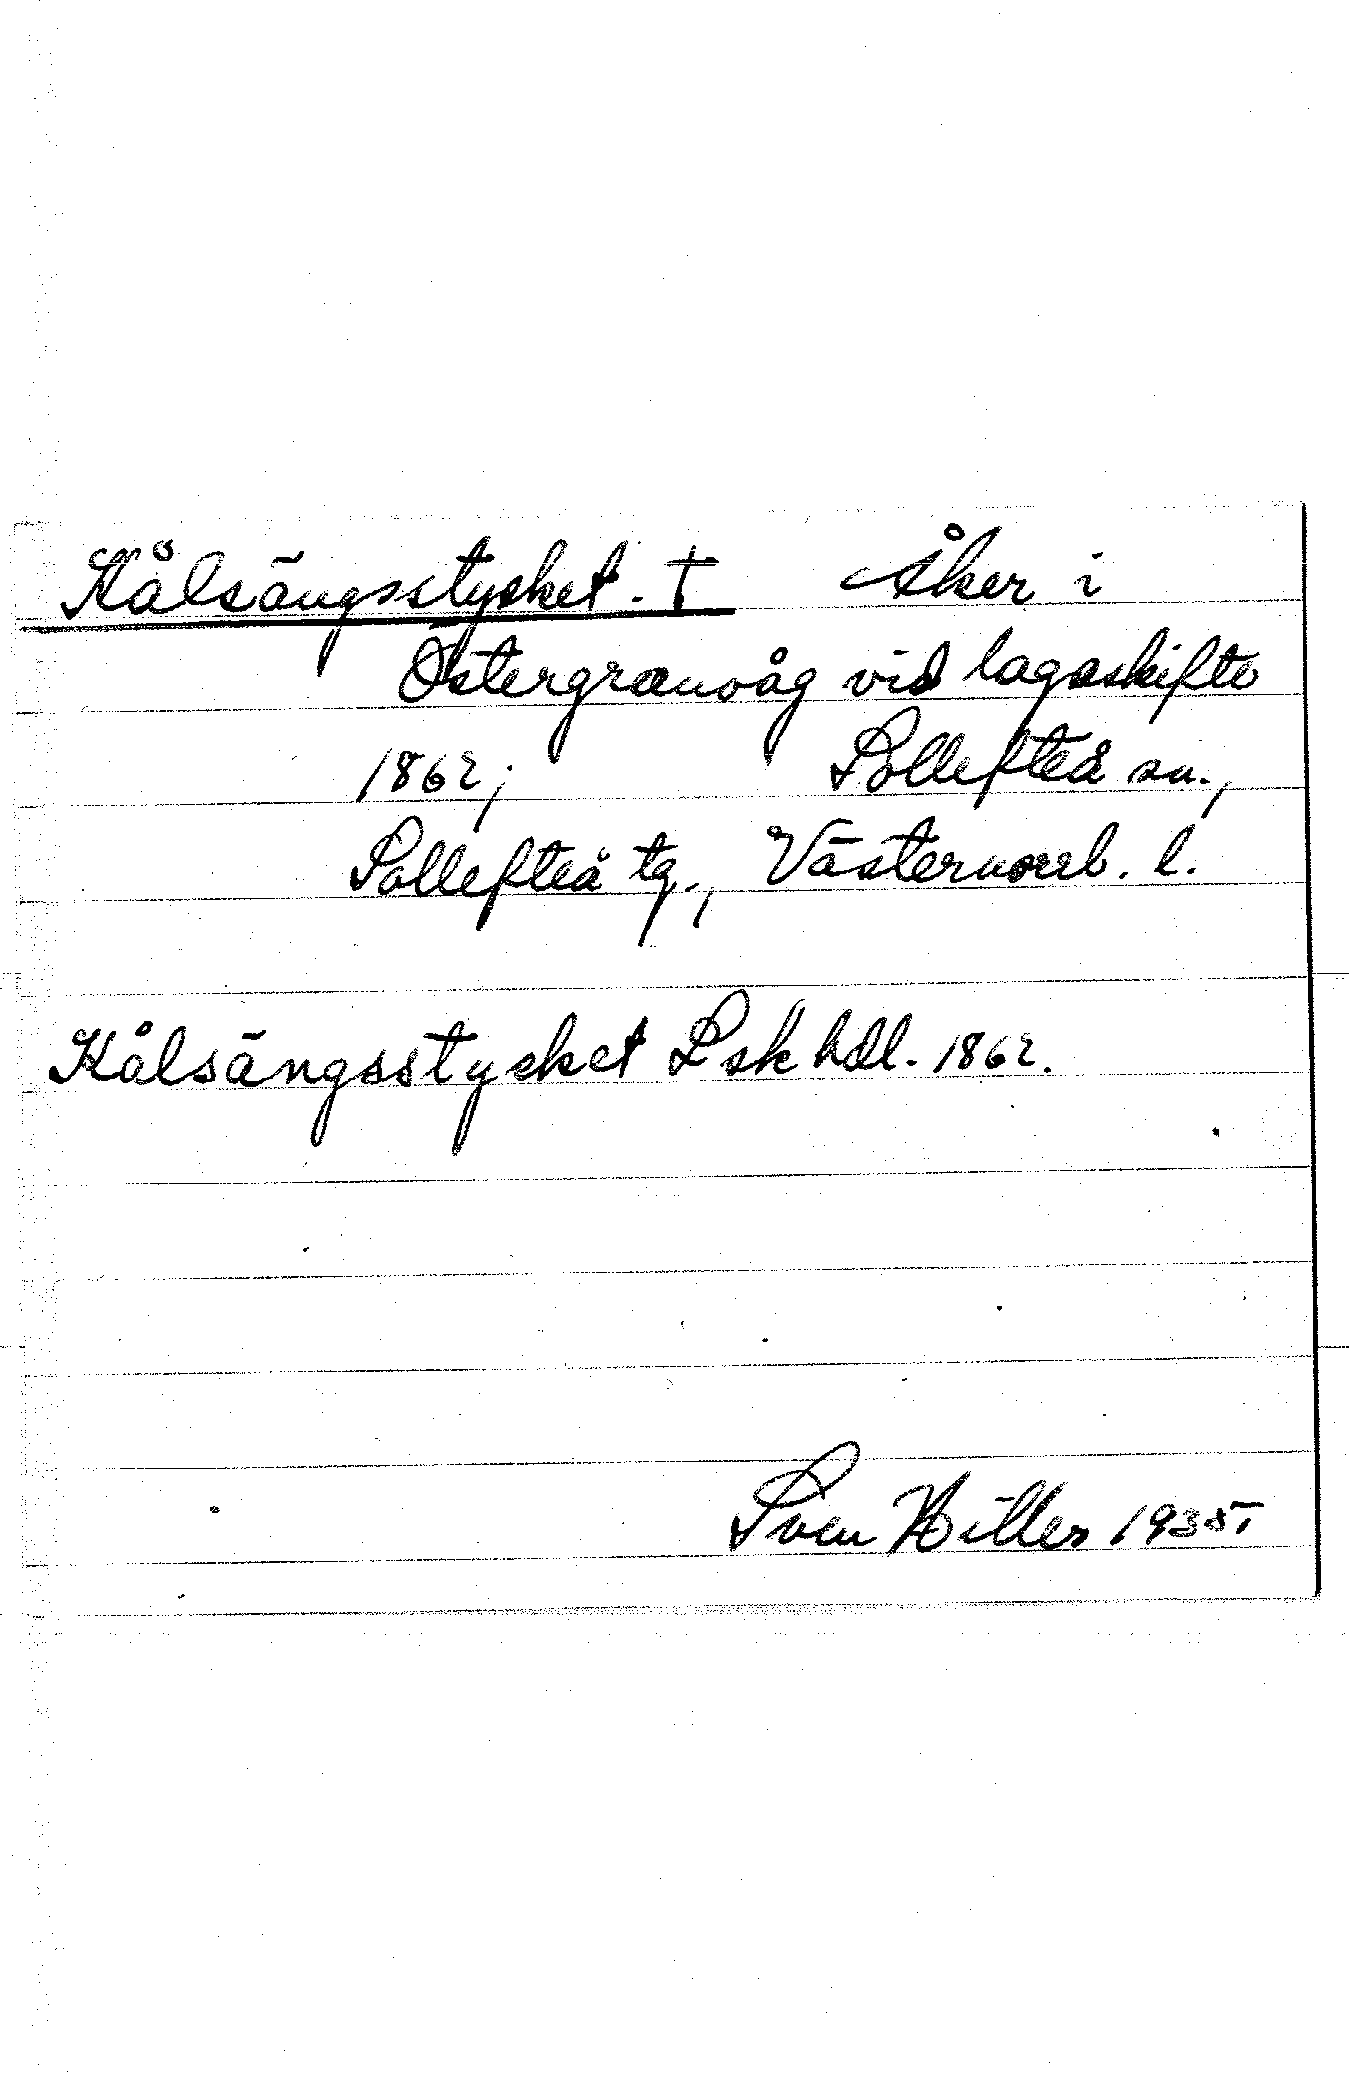 Kålsängsstycket. † Åker i
Östergranvåg vid lagaskifte
1862; Sollefteå sn.,
Sollefteå tg., Västernorrl. l.
Kålsängsstycket Lsk hdl. 1862.
Sven Hiller 1935.